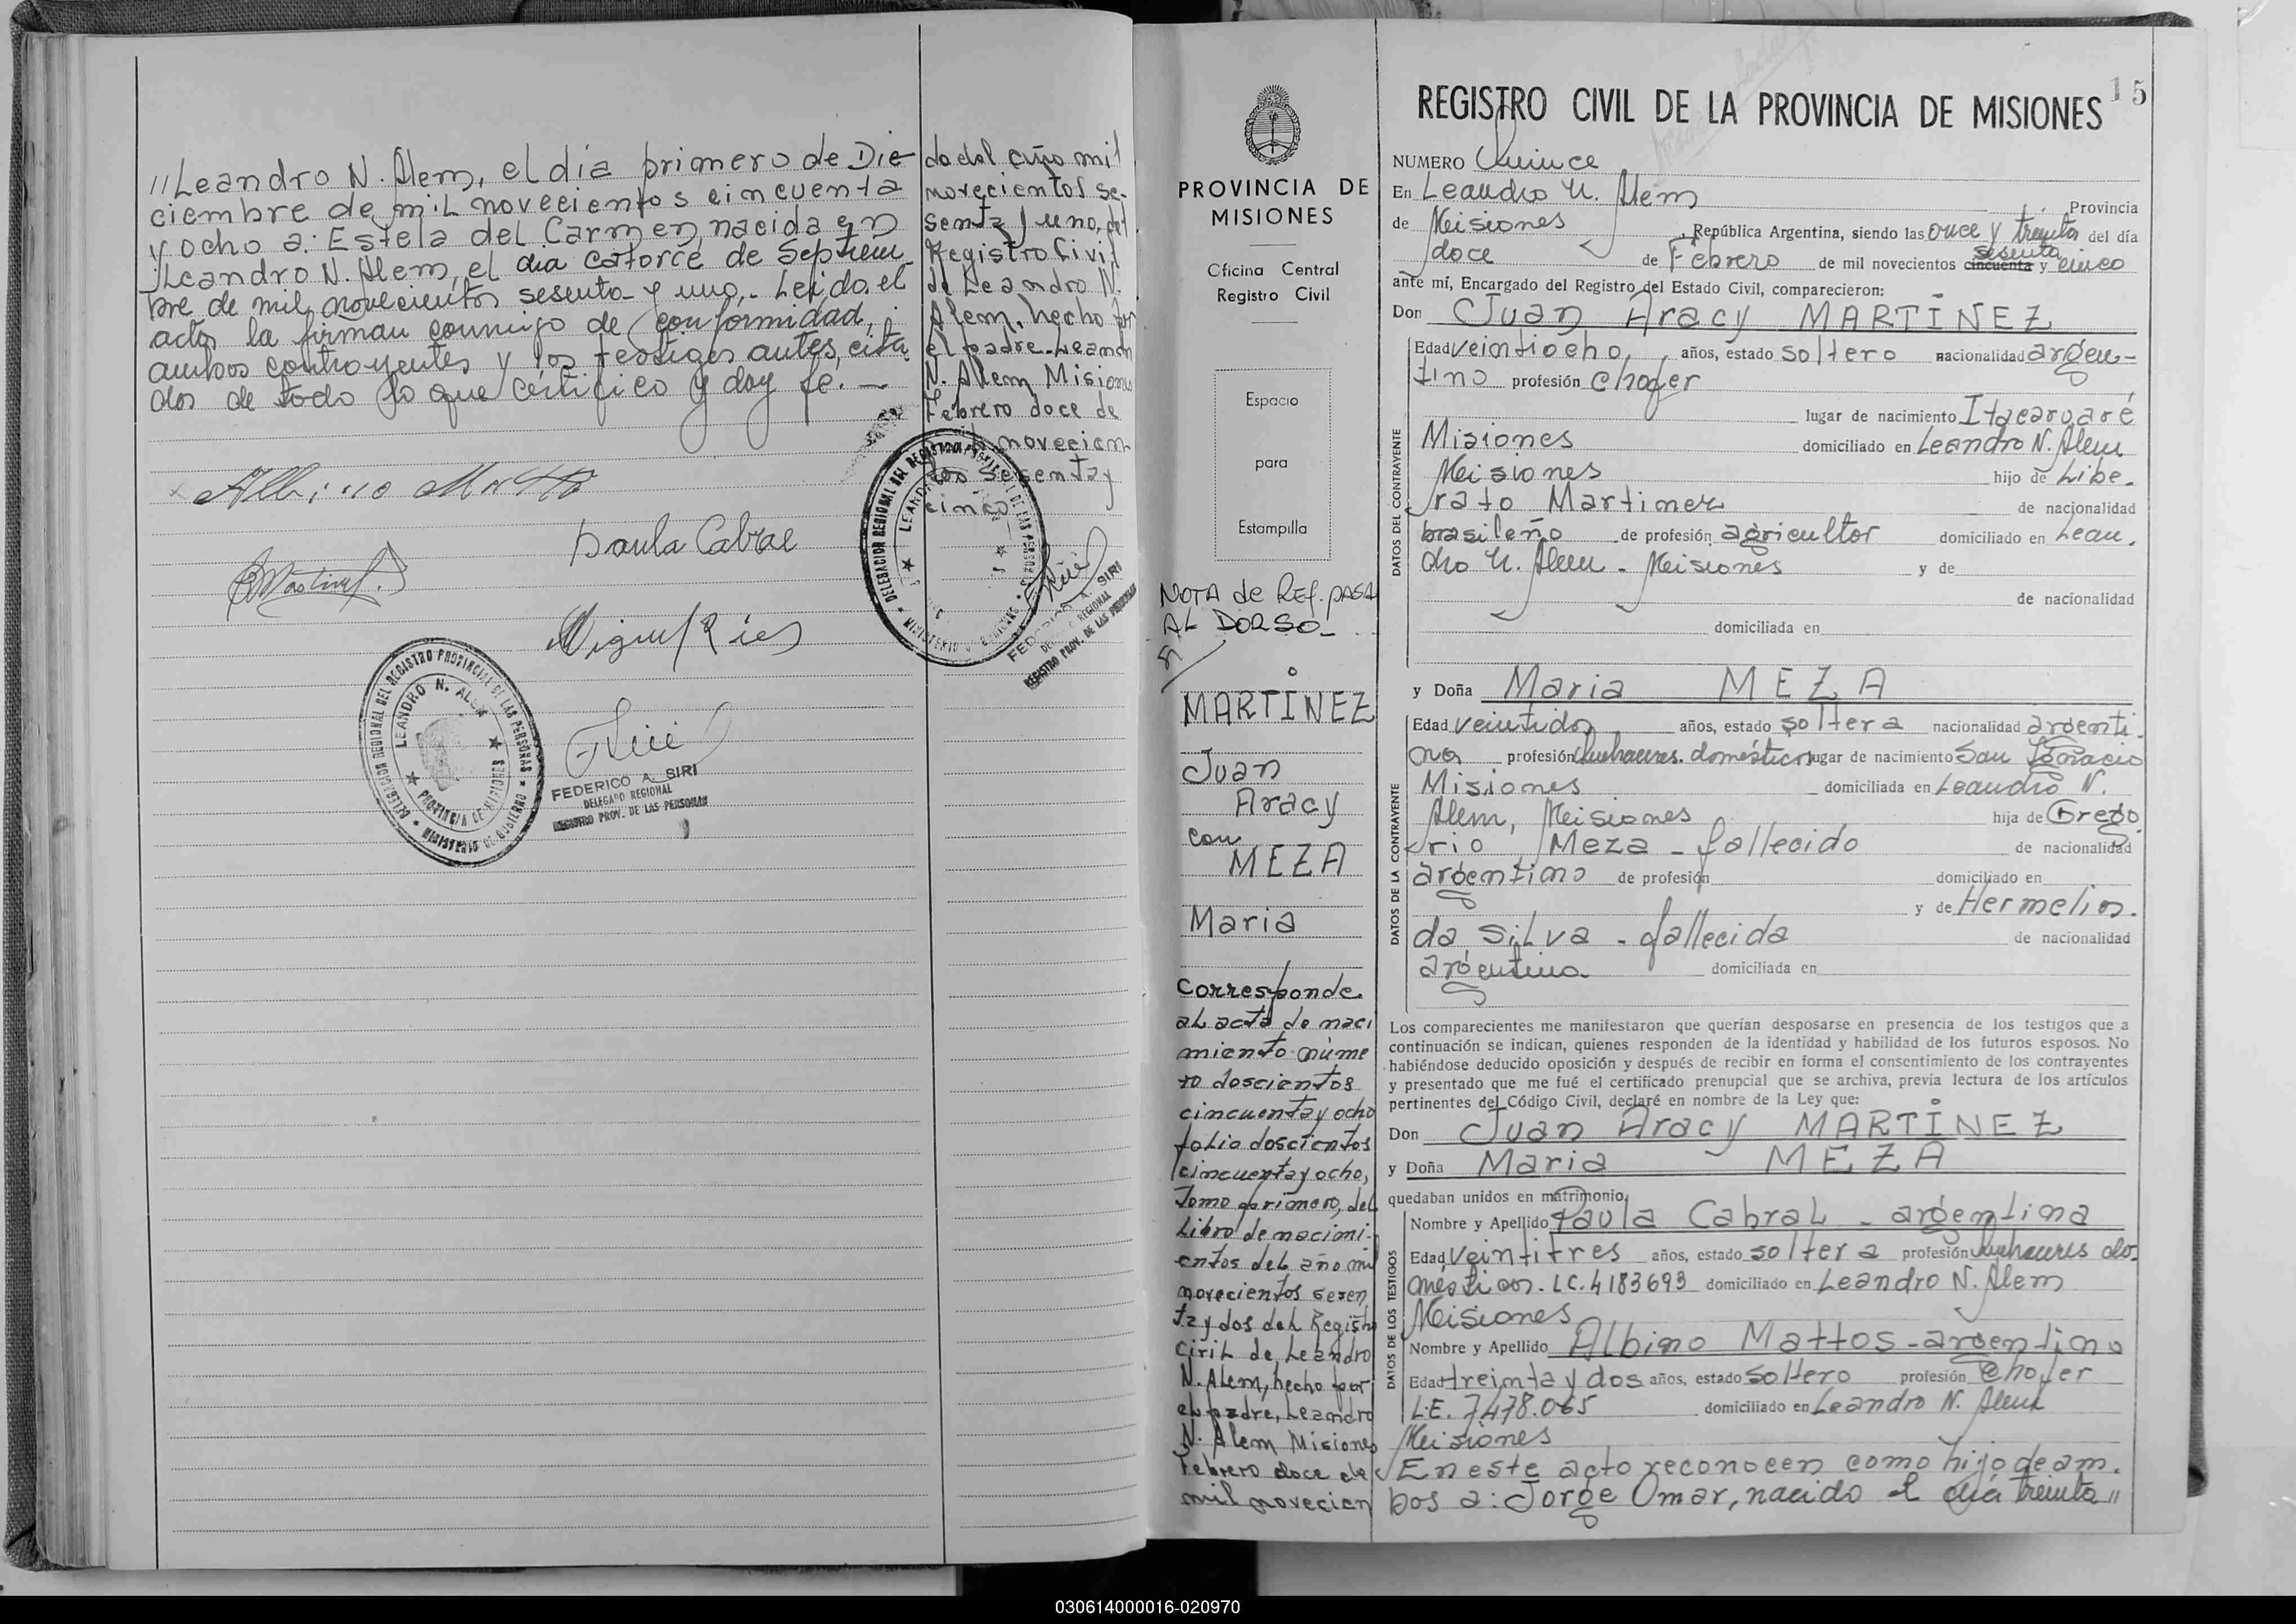 //Leandro N. Alem, el día primero de Di-
ciembre de mil novecientos cincuenta
y ocho a: Estela del Carmen, nacida en
Leandro N. Alem, el día catorce de Septiem-
bre de mil novecientos sesenta y uno.- Leido el
acta la firman conmigo de conformidad,
ambos contrayentes y los testigos antes cita
dos de todo lo que certifico y doy fe. -
do del año mil
novecientos se-
senta y uno, del
Registro Civil
de Leandro N.
Alem, hecho por
el padre.- Leandro
N. Alem Misiones
Febrero doce de
mil novecien-
tos sesenta y
cinco
Albino Matto
Paula Cabral
Miguel Ries
DELEGACION REGIONAL DEL REGISTRO PROVINCIAL DE LAS PERSONAS
LEANDRO N. ALEM
PROVINCIA DE MISIONES
MINISTERIO DE GOBIERNO
FEDERICO A. SIRI
DELEGADO REGIONAL
REGISTRO PROV. DE LAS PERSONAS
FEDERICO A. SIRI
DELEGADO REGIONAL
REGISTRO PROV. DE LAS PERSONAS
PROVINCIA DE
MISIONES
Oficina Central
Registro Civil
Espacio
para
Estampilla
NOTA de Ref. PASA
AL DORSO_
MARTÍNEZ
Juan
Aracy
con
MEZA
Maria
Corresponde
al acta de naci
miento núme
ro doscientos
cincuenta y ocho
folio doscientos
cincuenta y ocho,
Tomo primero, del
Libro de nacimi-
entos del año mil
novecientos sesen
ta y dos del Registro
Civil de Leandro
N. Alem, hecho por
el padre, Leandro
N. Alem Misiones
Febrero doce de
mil novecien
15
REGISTRO CIVIL DE LA PROVINCIA DE MISIONES
NUMERO Quince
En Leandro N. Alem Provincia
de Misiones, República Argentina, siendo las once y treinta del día
doce de Febrero de mil novecientos cincuenta sesenta y cinco
ante mí, Encargado del Registro del Estado Civil, comparecieron:
Don Juan Aracy MARTÍNEZ
DATOS DEL CONTRAYENTE
Edad veintiocho, años, estado soltero nacionalidad argen-
tino profesión chofer
lugar de nacimiento Itacaruaré
Misiones domiciliado en Leandro N. Alem
Misiones hijo de Libe-
rato Martinez de nacionalidad
brasileño de profesión agricultor domiciliado en Lean-
dro N. Alem - Misiones y de
de nacionalidad
domiciliada en
y Doña Maria MEZA
DATOS DE LA CONTRAYENTE
Edad veintidos años, estado soltera nacionalidad argenti-
na profesión quehaceres domésticos lugar de nacimiento San Ignacio
Misiones domiciliada en Leandro N.
Alem, Misiones hija de Grego-
rio Meza - fallecido de nacionalidad
argentino de profesión domiciliado en
y de Hermelin-
da Silva - fallecida de nacionalidad
argentina domiciliada en
Los comparecientes me manifestaron que querían desposarse en presencia de los testigos que a
continuación se indican, quienes responden de la identidad y habilidad de los futuros esposos. No
habiéndose deducido oposición y después de recibir en forma el consentimiento de los contrayentes
y presentado que me fué el certificado prenupcial que se archiva, previa lectura de los artículos
pertinentes del Código Civil, declaré en nombre de la Ley que:
Don Juan Aracy MARTÍNEZ
y Doña Maria MEZA
quedaban unidos en matrimonio.
DATOS DE LOS TESTIGOS
Nombre y Apellido Paula Cabral - argentina
Edad veintitres años, estado soltera profesión quehaceres do-
mésticos. LC. 4183693 domiciliado en Leandro N. Alem
Misiones
Nombre y Apellido Albino Mattos - argentino
Edad treinta y dos años, estado soltero profesión chofer
L.E. 7.478.065 domiciliado en Leandro N. Alem
Misiones
En este acto reconocen como hijo de am-
bos a: Jorge Omar, nacido el día treinta //
030614000016-020970